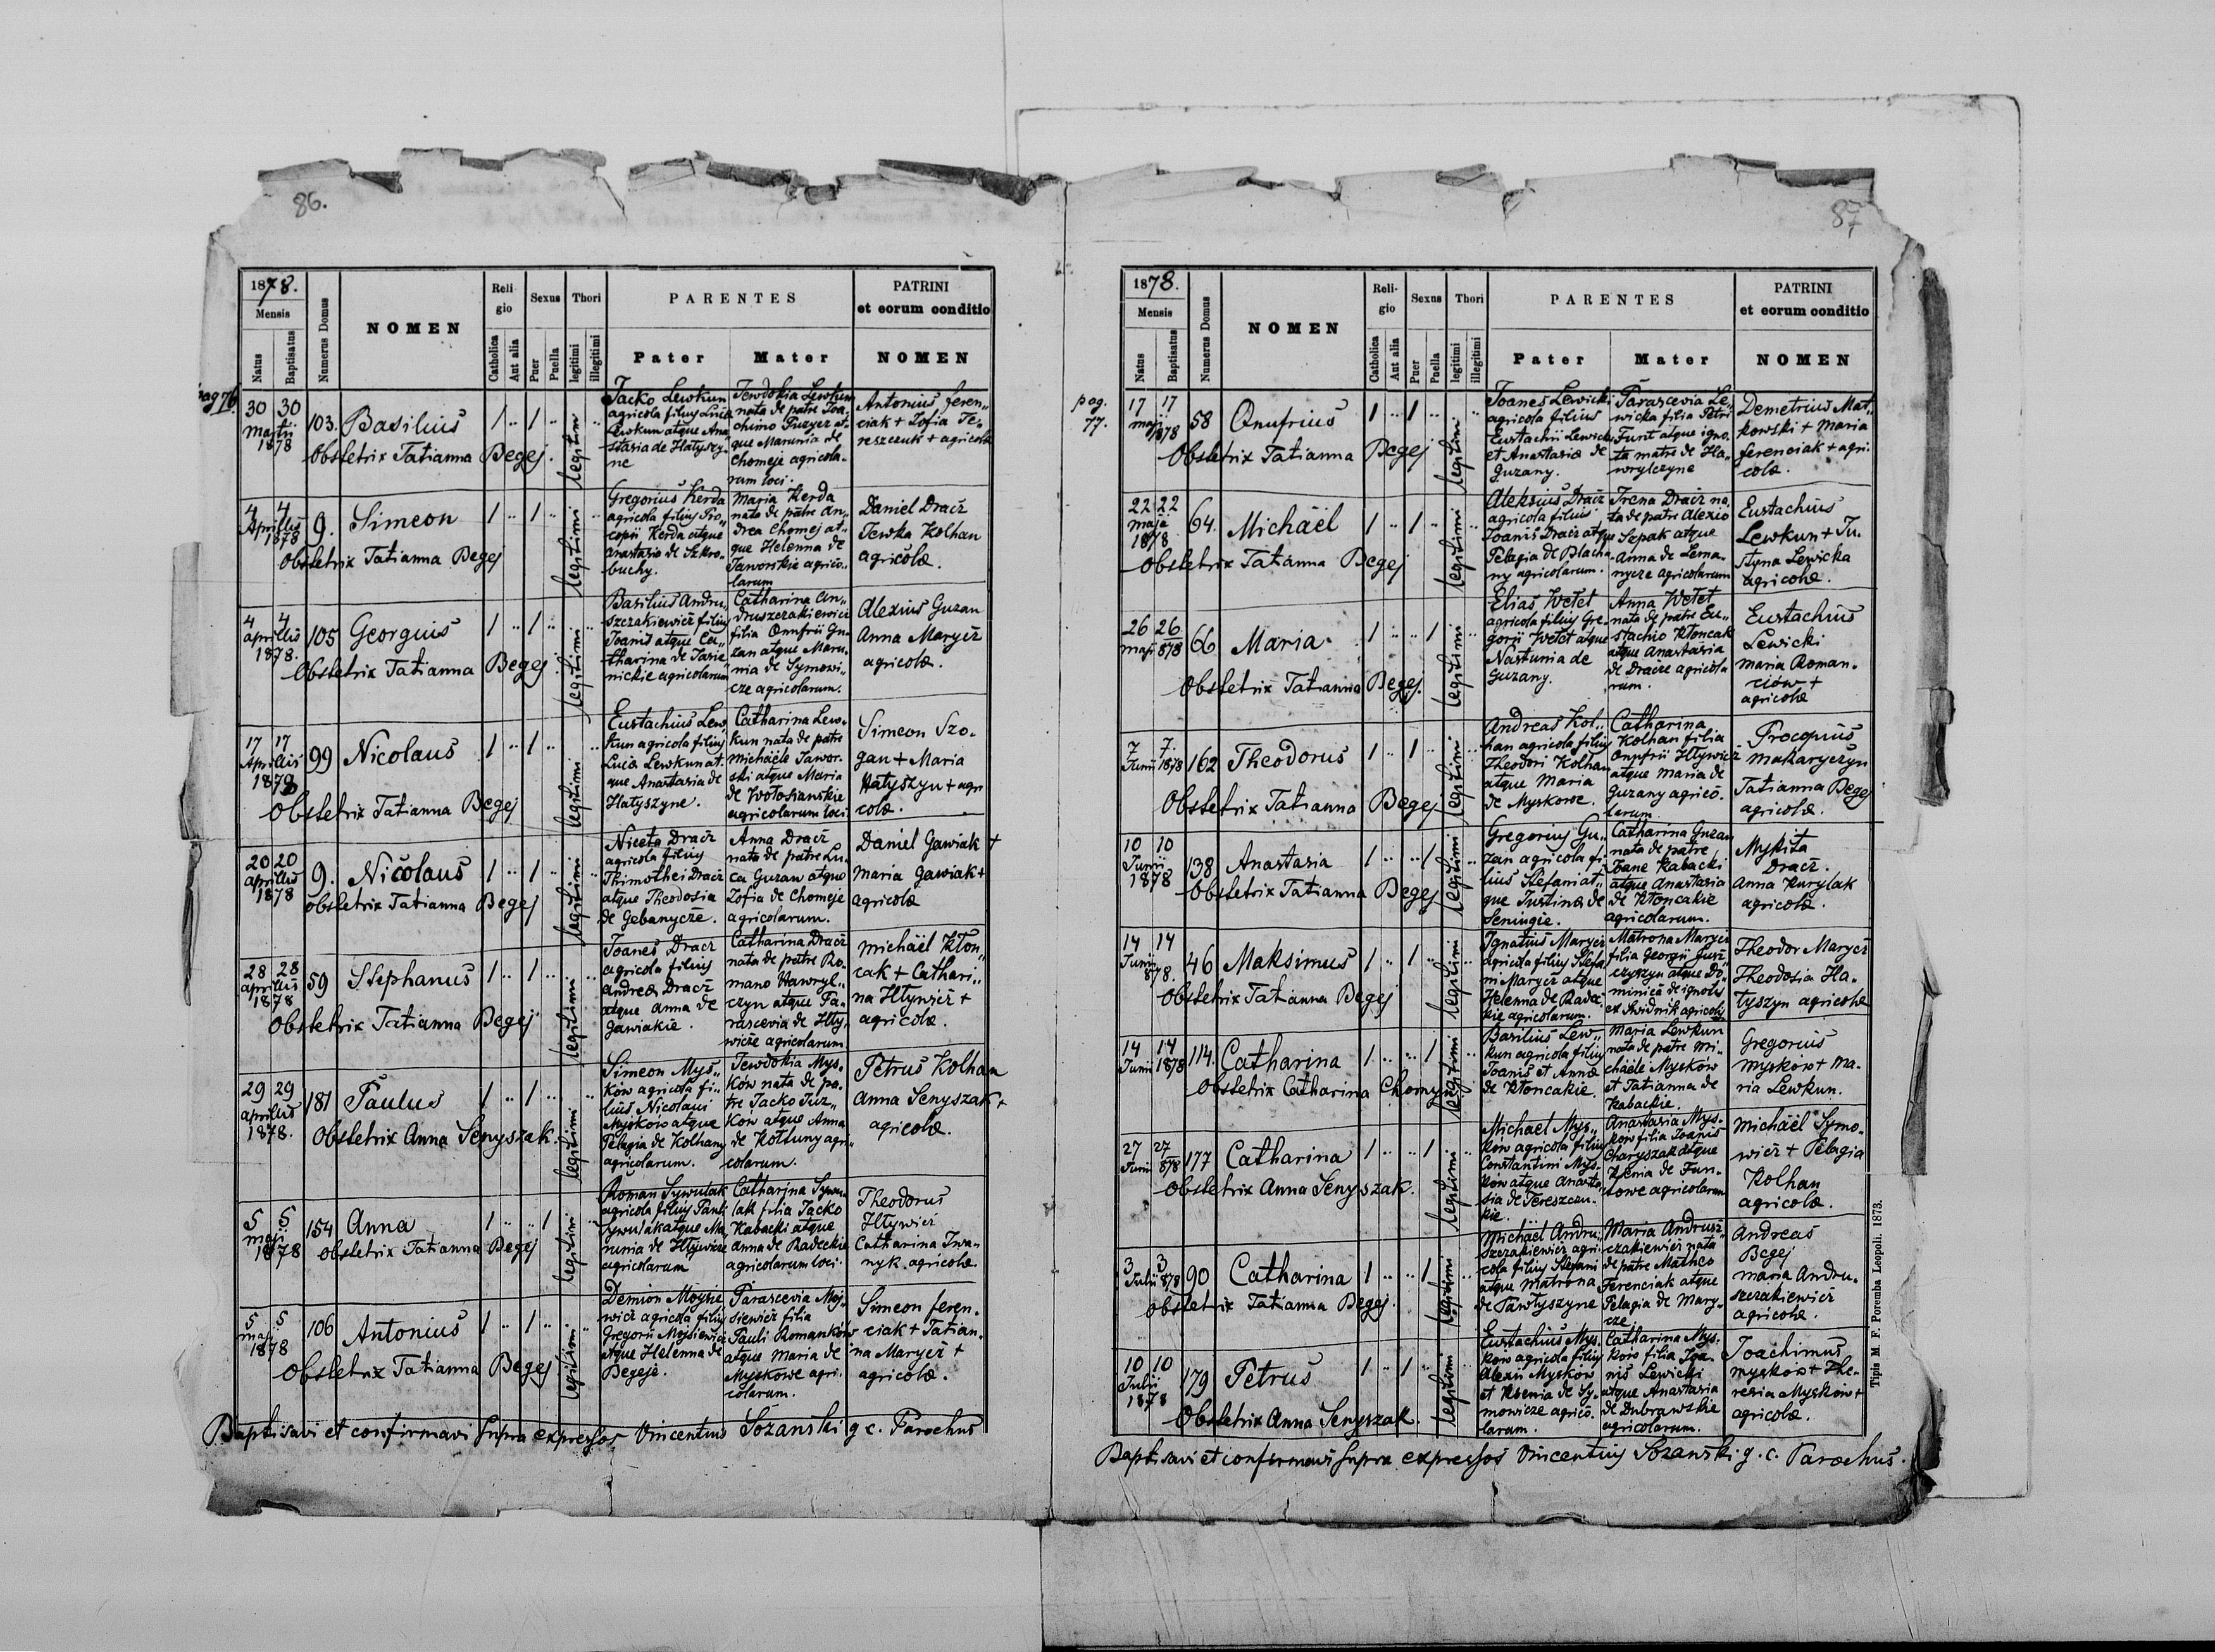 86.
1878.
Mensis
Natus
Baptisatus
Numerus Domus
NOMEN
Reli-
gio
Catholica
Aut alia
Sexus
Puer
Puella
Thori
legitimi
illegitimi
PARENTES
Pater
Mater
PATRINI
et eorum conditio
NOMEN
pag 76.
30 30
Martii
1878
103. Basilius
1 .. 1 ..
legitimi
Obstetrix Tatianna Begej.
Jacko Lewkun
agricola filius Lucæ
Lewkun atque Ana
stasia de Hatyszy-
ne
Jewdokia Lewkun
nata de patre Joa-
chimo Puzycz at-
que Marunia de
Chomeje agricola-
rum loci.
Antonius feren„
ciak + Zofia Te„
reszczuk + agricolæ
4 4
Aprilis
1878
9. Simeon
1 .. 1 ..
legitimi
Obstetrix Tatianna Begej
Gregorius Kerda
agricola filius Pro„
copii Kerda atque
Anastasia de Szkro-
buchy.
Maria Kerda
nata de patre An„
drea Chomej at„
que Helenna de
Jaworskie agrico„
larum
Daniel Dracz
Jewka Kolhan
agricolæ.
4 4
aprilis
1878.
105 Georguis
1 .. 1 ..
legitimi
Obstetrix Tatianna Begej
Basilius Andru„
szczakiewicz filius
Joanis atque Ca„
tharina de Jasie„
nickie agricolarum
Catharina An„
druszczakiewicz
filia Onufrii Gu-
zan atque Maru-
nia de Symowi„
cze agricolarum.
Alexius Guzan
Anna Marycz
agricolæ.
17 17
Aprilis
1878
99 Nicolaus
1 .. 1 ..
legitimi
Obstetrix Tatianna Begej
Eustachius Lew„
kun agricola filius
Lucæ Lewkun at-
que Anastasia de
Hatyszyne.
Catharina Lew-
kun nata de patre
Michäele Jawor-
ski atque Maria
de Wołosianskie
agricolarum loci
Simeon Szo-
gan + Maria
Hatyszyn + agri
colæ.
20 20
aprilis
1878
9. Nicolaus
1 .. 1 ..
legitimi
Obstetrix Tatianna Begej
Niceta Dracz
agricola filius
Thimothei Dracz
atque Theodosia
de Gebanycze.
Anna Dracz
nata de patre Lu-
ca Guzan atque
Zofia de Chomeje
agricolarum.
Daniel Gawiak +
Maria Gawiak +
agricolæ
28 28
aprilis
1878
59 Stephanus
1 .. 1 ..
legitimi
Obstetrix Tatianna Begej
Joanes Dracz
agricola filius
Andreæ Dracz
atque Anna de
Gawiakie.
Catharina Dracz
nata de patre Ro-
mano Hawryl„
czyn atque Pa-
rascevia de Hły-
wicze agricolarum
Michäel Kłon„
cak + Cathari„
na Hływicz +
agricolæ.
29 29
aprilis
1878.
181 Paulus
1 .. 1 ..
legitimi
Obstetrix Anna Senyszak.
Simeon Mys„
ków agricola fi-
lius Nicolaui
Myśków atque
Pelagia de Kolhany
agricolarum.
Jewdokia Mys-
ków nata de pa-
tre Jacko Juz„
ków atque Anna
de Kołtuny agri„
colarum.
Petrus Kolhan
Anna Senyszak +
agricolæ.
5 5
maji
1878
154 Anna
1 .. .. 1
legitimi
Obstetrix Tatianna Begej
Roman Sywulak
agricola filius Pauli
Sywulak atque Ma„
runia de Hływicze
agricolarum
Catharina Sywu-
lak filia Jacko
Kabacki atque
Anna de Radeckie
agricolarum loci.
Theodorus
Hływicz
Catharina Iwa-
nyk agricolæ.
5 5
maji
1878
106 Antonius
1 .. 1 ..
legitimi
Obstetrix Tatianna Begej
Demion Mojsie
wicz agricola filius
Gregorii Mojsiewicz
atque Helenna de
Begeje.
Parascevia Moj„
siewicz filia
Pauli Romanków
atque Maria de
Myskowe agri-
colarum.
Simeon feren-
ciak + Tatian-
na Marycz +
agricolæ.
Baptisavi et confirmavi Supra expressos Vincentius Sozanski g. c. Parochus
87
1878.
Mensis
Natus
Baptisatus
Numerus Domus
NOMEN
Reli-
gio
Catholica
Aut alia
Sexus
Puer
Puella
Thori
legitimi
illegitimi
PARENTES
Pater
Mater
PATRINI
et eorum conditio
NOMEN
pag.
77.
17 17
maji
1878
58 Onufrius
1 .. 1 ..
legitimi
Obstetrix Tatianna Begej
Joanes Lewicki
agricola filius
Eustachii Lewicki
et Anastasia de
Guzany.
Parascevia Le„
wicka filia Petri
Funt atque igno-
ta matre de Ha-
wrylczyne
Demetrius Mat„
kowski + Maria
ferenciak + agri-
colæ.
22 22
maji
1878
64. Michäel
1 .. 1 ..
legitimi
Obstetrix Tatianna Begej
Aleksius Dracz
agricola filius
Joanis Dracz atque
Pelagia de Blacha-
ny agricolarum.
Irena Dracz na
ta de patre Alexio
Szpak atque
Anna de Lema-
nycze agricolarum
Eustachius
Lewkun + Ju-
styna Lewicka
agricolæ.
26 26
maji 1878
66 Maria
1 .. .. 1
legitimi
Obstetrix Tatianna Begej.
Elias Wełet
agricola filius Gre-
gorii Wełet atque
Nastunia de
Guzany.
Anna Wełet
nata de patre Eu„
stachio Kłoncak
atque Anastasia
de Dracze agricola
rum.
Eustachius
Lewicki
Maria Roman-
ców +
agricolæ
7 7.
Junii 1878
162 Theodorus
1 .. 1 ..
legitimi
Obstetrix Tatianna Begej
Andreas Kol„
han agricola filius
Theodori Kolhan
atque Maria
de Myskowe.
Catharina
Kolhan filia
Onufrii Hływicz
atque Maria de
Guzany agrico-
larum
Procopius
Makaryczyn
Tatianna Begej
agricolæ.
10 10
Junii
1878
138 Anastasia
1 .. .. 1
legitimi
Obstetrix Tatianna Begej
Gregorius Gu„
zan agricola fi-
lius Stefani at„
que Justina de
Seningie.
Catharina Guzan
nata de patre
Joane Kabacki
atque Anastasia
de Kłoncakie
agricolarum.
Mykita
Dracz.
Anna Kurylak
agricolæ.
14 14
Junii
1878.
46 Maksimus
1 .. 1 ..
legitimi
Obstetrix Tatianna Begej
Ignatius Marycz
agricola filius Stefa
ni Marycz atque
Helenna de Radec-
kie agricolarum.
Matrona Marycz
filia Georgii Husz
czyszyn atque Do„
minica de ignotis
ex Swidnik agricolis
Theodor Marycz
Theodosia Ha-
tyszyn agricolæ
14 14
Junii 1878
114. Catharina
1 .. .. 1
legitimi
Obstetrix Catharina Chomyn
Basilius Lew„
kun agricola filius
Joanis et Anna
de Kłoncakie.
Maria Lewkun
nata de patre Mi-
chäele Myskow
et Tatianna de
Kabackie.
Gregorius
Myskow + Ma-
ria Lewkun.
27 27
Junii 1878
177 Catharina
1 .. .. 1
legitimi
Obstetrix Anna Senyszak.
Michael Mys„
ków agricola filius
Constantini Mys-
ków atque Anasta-
sia de Tereszczu-
kie.
Anastasia Mys-
ków filia Joanis
Charyszak atque
Xenia de Fun-
towe agricolarum
Michäel Symo-
wicz + Pelagia
Kolhan
agricolæ.
3 3
Julii 1878
90 Catharina
1 .. .. 1
legitimi
Obstetrix Tatianna Begej.
Michäel Andru„
szczakiewicz agri-
cola filius Stefani
atque Matrona
de Pawłyszyne
Maria Andrusz
czakiewicz nata
de patre Matheo
Ferenciak atque
Pelagia de Mary-
cze.
Andreas
Begej
Maria Andru-
szczakiewicz
agricolæ.
10 10
Julii
1878
179 Petrus
1 .. 1 ..
legitimi
Obstetrix Anna Senyszak.
Eustachius Mys-
ków agricola filius
Alexii Myskow
et Xsenia de Sy-
mowicze agrico-
larum.
Catharina Mys-
kow filia Joa-
nis Lewicki
atque Anastasia
de Dubrawskie
agricolarum.
Joachimus
Myskow + The-
resia Myskow +
agricolæ.
Tipis M. F. Poremba Leopoli. 1873.
Baptisavi et confirmavi Supra expressos Vincentius Sozanski g. c. Parochus.